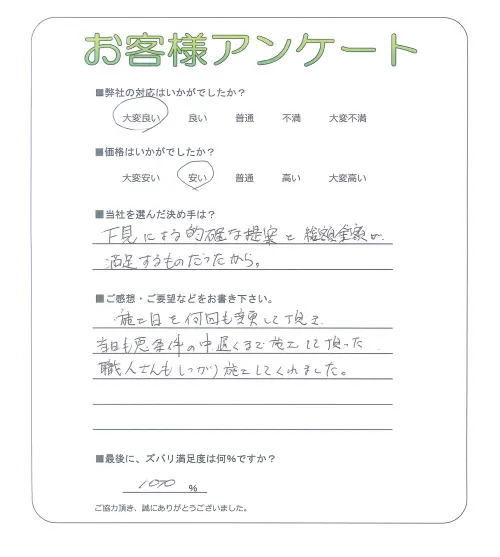 お客様アンケート
■弊社の対応はいかがでしたか?
大変良い 良い 普通 不満 大変不満
■価格はいかがでしたか?
大変安い 安い 普通 高い 大変高い
■当社を選んだ決め手は?
下見による的確な提案と総額金額が
満足するものだったから。
■ご感想・ご要望などをお書き下さい。
施工日を何回も変更して頂き
当日も悪条件の中遅くまで施工して頂った
職人さんもしっかり施工してくれました。
■最後に、ズバリ満足度は何%ですか?
100 %
ご協力頂き、誠にありがとうございました。